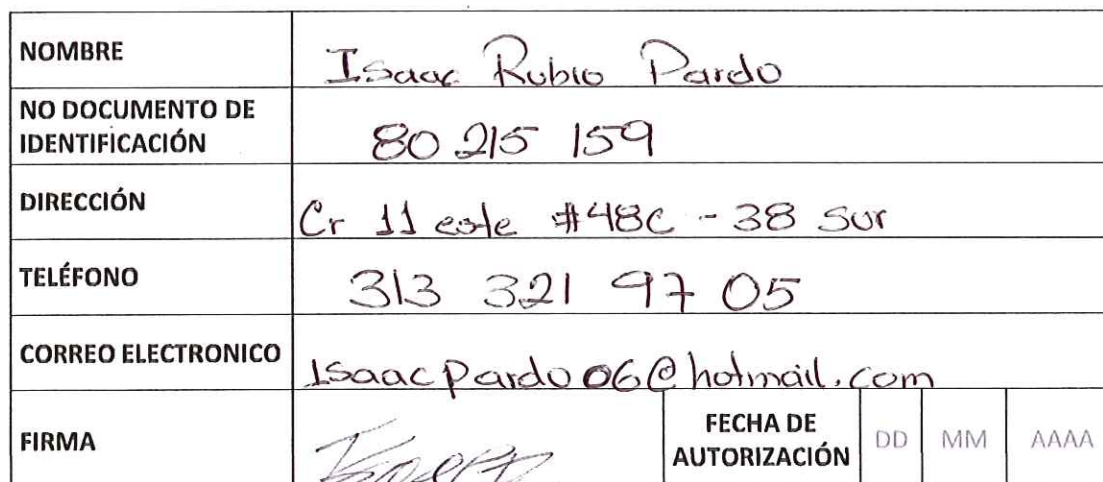 NOMBRE Isaac Rubio Pardo
NO DOCUMENTO DE
IDENTIFICACIÓN 80 215 159
DIRECCIÓN Cr 11 este #48C - 38 Sur
TELÉFONO 313 321 97 05
CORREO ELECTRONICO Isaacpardo06@hotmail.com
FIRMA FECHA DE
AUTORIZACIÓN DD MM AAAA